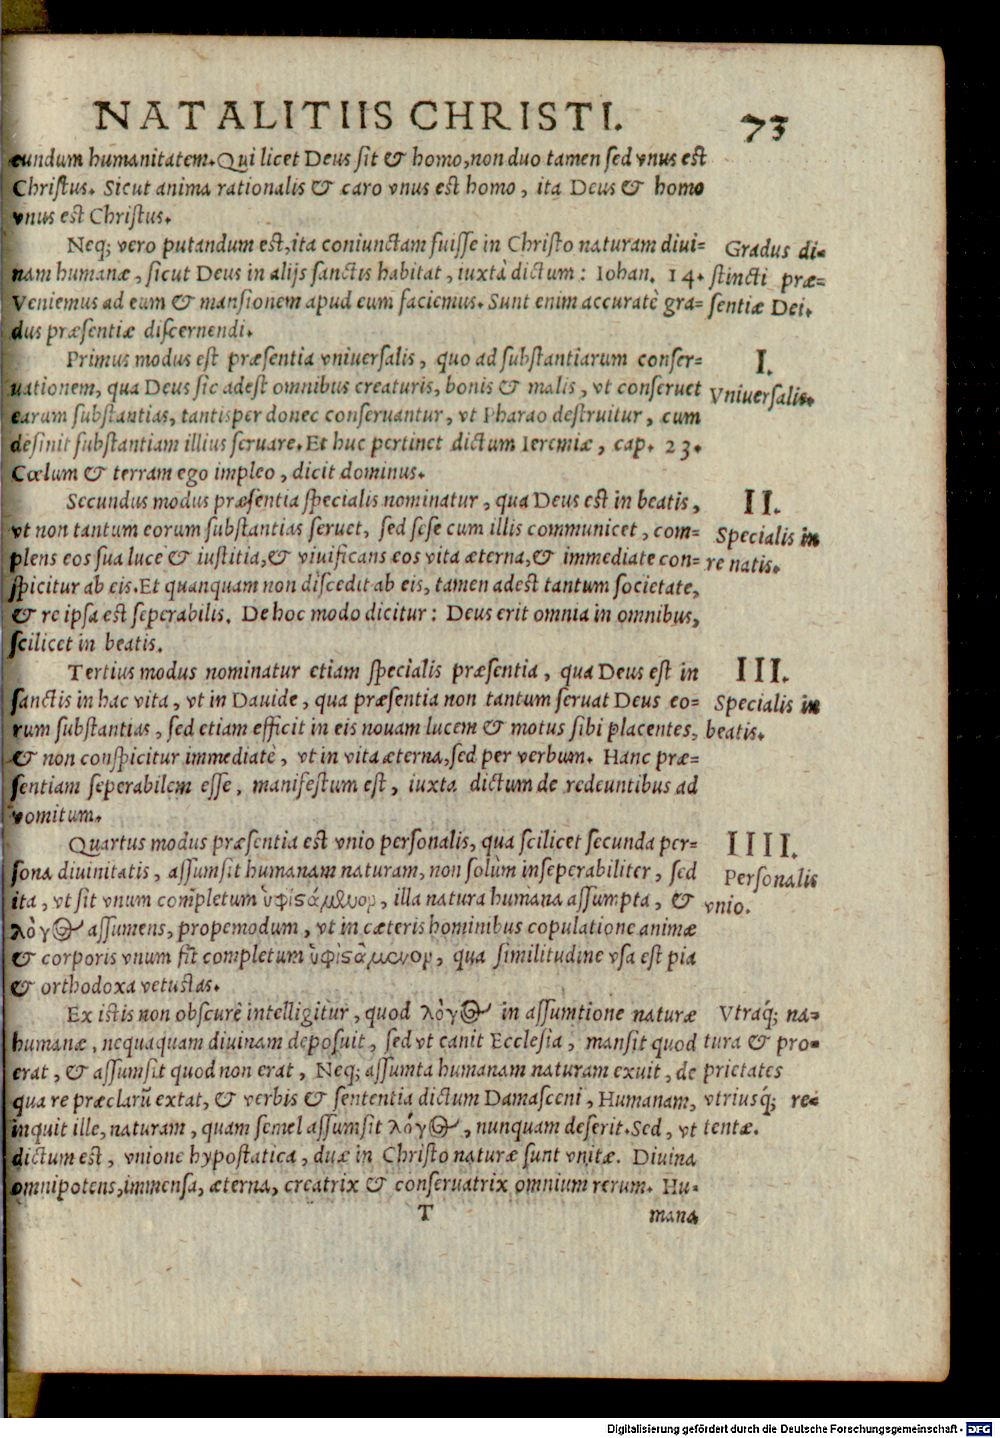 NATALITIIS CHRISTI. 73
cundum humanitatem. Qui licet Deus ſit & homo, non duo tamen ſed vnus eſt
Chriſtus. Sicut anima rationalis & caro vnus eſt homo, ita Deus & homo
vnus eſt Chriſtus.
Neq; vero putandum eſt, ita coniunctam fuiſſe in Chriſto naturam diui=
nam humanæ, ſicut Deus in alijs ſanctis habitat, iuxtà dictum: Iohan. 14.
Veniemus ad eum & manſionem apud eum faciemus. Sunt enim accuratè gra=
dus præſentiæ diſcernendi.
Gradus di=
ſtincti præ=
ſentiæ Dei.
Primus modus eſt præſentia vniuerſalis, quo ad ſubſtantiarum conſer=
uationem, qua Deus ſic adeſt omnibus creaturis, bonis & malis, vt conſeruet
earum ſubſtantias, tantisper donec conſeruantur, vt Pharao deſtruitur, cum
deſinit ſubſtantiam illius ſeruare. Et huc pertinet dictum Ieremiæ, cap. 23.
Cœlum & terram ego impleo, dicit dominus.
I.
Vniuerſalis.
Secundus modus præſentia ſpecialis nominatur, qua Deus eſt in beatis,
vt non tantum eorum ſubſtantias ſeruet, ſed ſeſe cum illis communicet, com=
plens eos ſua luce & iuſtitia, & viuificans eos vita æterna, & immediate con=
ſpicitur ab eis. Et quanquam non diſcedit ab eis, tamen adeſt tantum ſocietate,
& re ipſa eſt ſeperabilis. De hoc modo dicitur: Deus erit omnia in omnibus,
ſcilicet in beatis.
II.
Specialis in
re natis.
Tertius modus nominatur etiam ſpecialis præſentia, qua Deus eſt in
ſanctis in hac vita, vt in Dauide, qua præſentia non tantum ſeruat Deus eo=
rum ſubſtantias, ſed etiam efficit in eis nouam lucem & motus ſibi placentes,
& non conſpicitur immediatè, vt in vita æterna, ſed per verbum. Hanc præ=
ſentiam ſeperabilem eſſe, manifeſtum eſt, iuxta dictum de redeuntibus ad
vomitum.
III.
Specialis in
beatis.
Quartus modus præſentia eſt vnio perſonalis, qua ſcilicet ſecunda per=
ſona diuinitatis, aſſumſit humanam naturam, non ſolùm inſeperabiliter, ſed
ita, vt ſit vnum completum ὑφιϛάμενον, illa natura humana aſſumpta, &
λόγος aſſumens, propemodum, vt in cæteris hominibus copulatione animæ
& corporis vnum fit completum ὑφιϛάμενον, qua ſimilitudine vſa eſt pia
& orthodoxa vetuſtas.
IIII.
Perſonalis
vnio.
Ex iſtis non obſcurè intelligitur, quod λόγος in aſſumtione naturæ
humanæ, nequaquam diuinam depoſuit, ſed vt canit Eccleſia, manſit quod
erat, & aſſumſit quod non erat, Neq; aſſumta humanam naturam exuit, de
qua re præclarũ extat, & verbis & ſententia dictum Damaſceni, Humanam,
inquit ille, naturam, quam ſemel aſſumſit λόγος, nunquam deſerit. Sed, vt
dictum eſt, vnione hypoſtatica, duæ in Chriſto naturæ ſunt vnitæ. Diuina
omnipotens, immenſa, æterna, creatrix & conſeruatrix omnium rerum. Hu=
Vtraq́; na=
tura & pro=
prietates
vtriusq́; re=
tentæ.
T mana
Digitalisierung gefördert durch die Deutsche Forschungsgemeinschaft - DFG